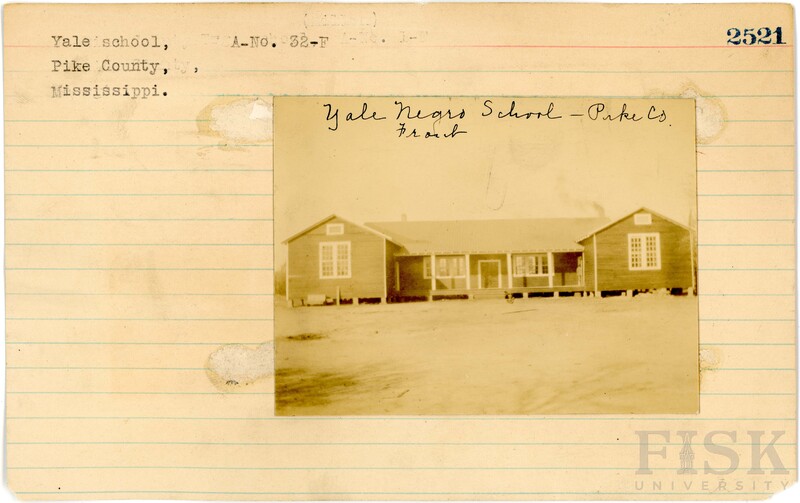 2521
Yale school, A-No. 32-F
Pike County,
Mississippi.
Yale Negro School - Pike Co.
Front
FISK
UNIVERSITY